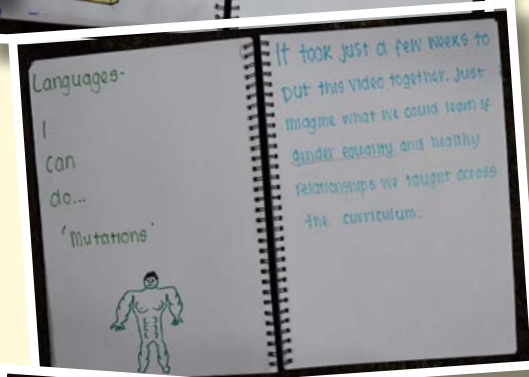 Languages-
I
can
do...
'Mutations'
It took just a few weeks to
put this video together. Just
imagine what we could learn if
gender equality and healthy
relationships we taught across
the curriculum.